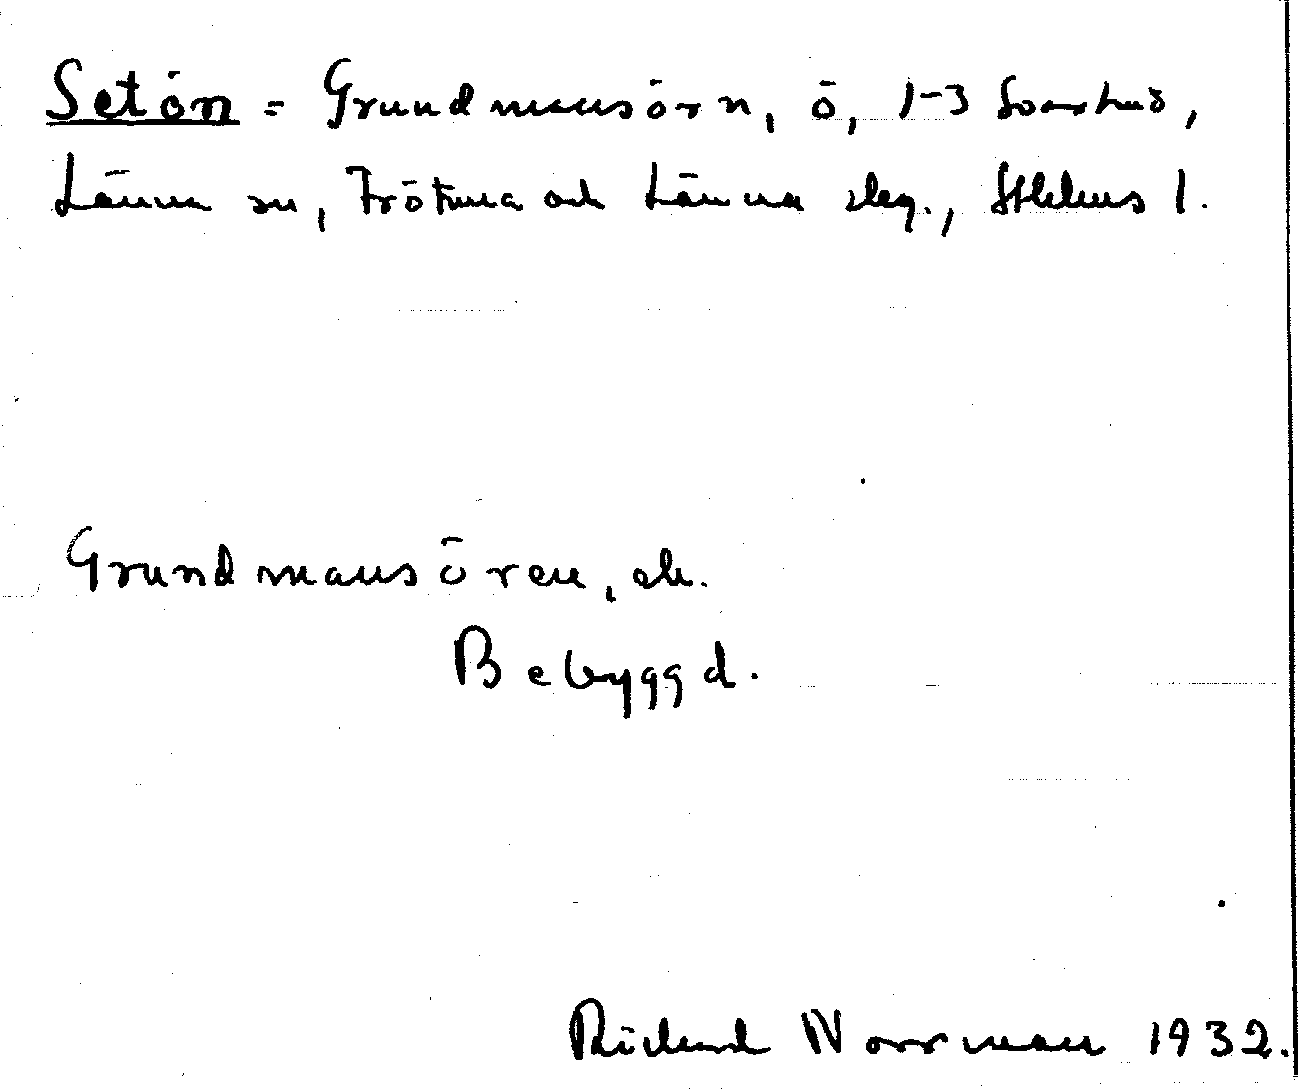 Setön = Grundmansörn, ö, 1-3 Svartnö,
Länna sn, Frötuna och Länna skg., Sthlms l.
Grundmansören, ek.
Bebyggd.
Rickard Norrman 1932.